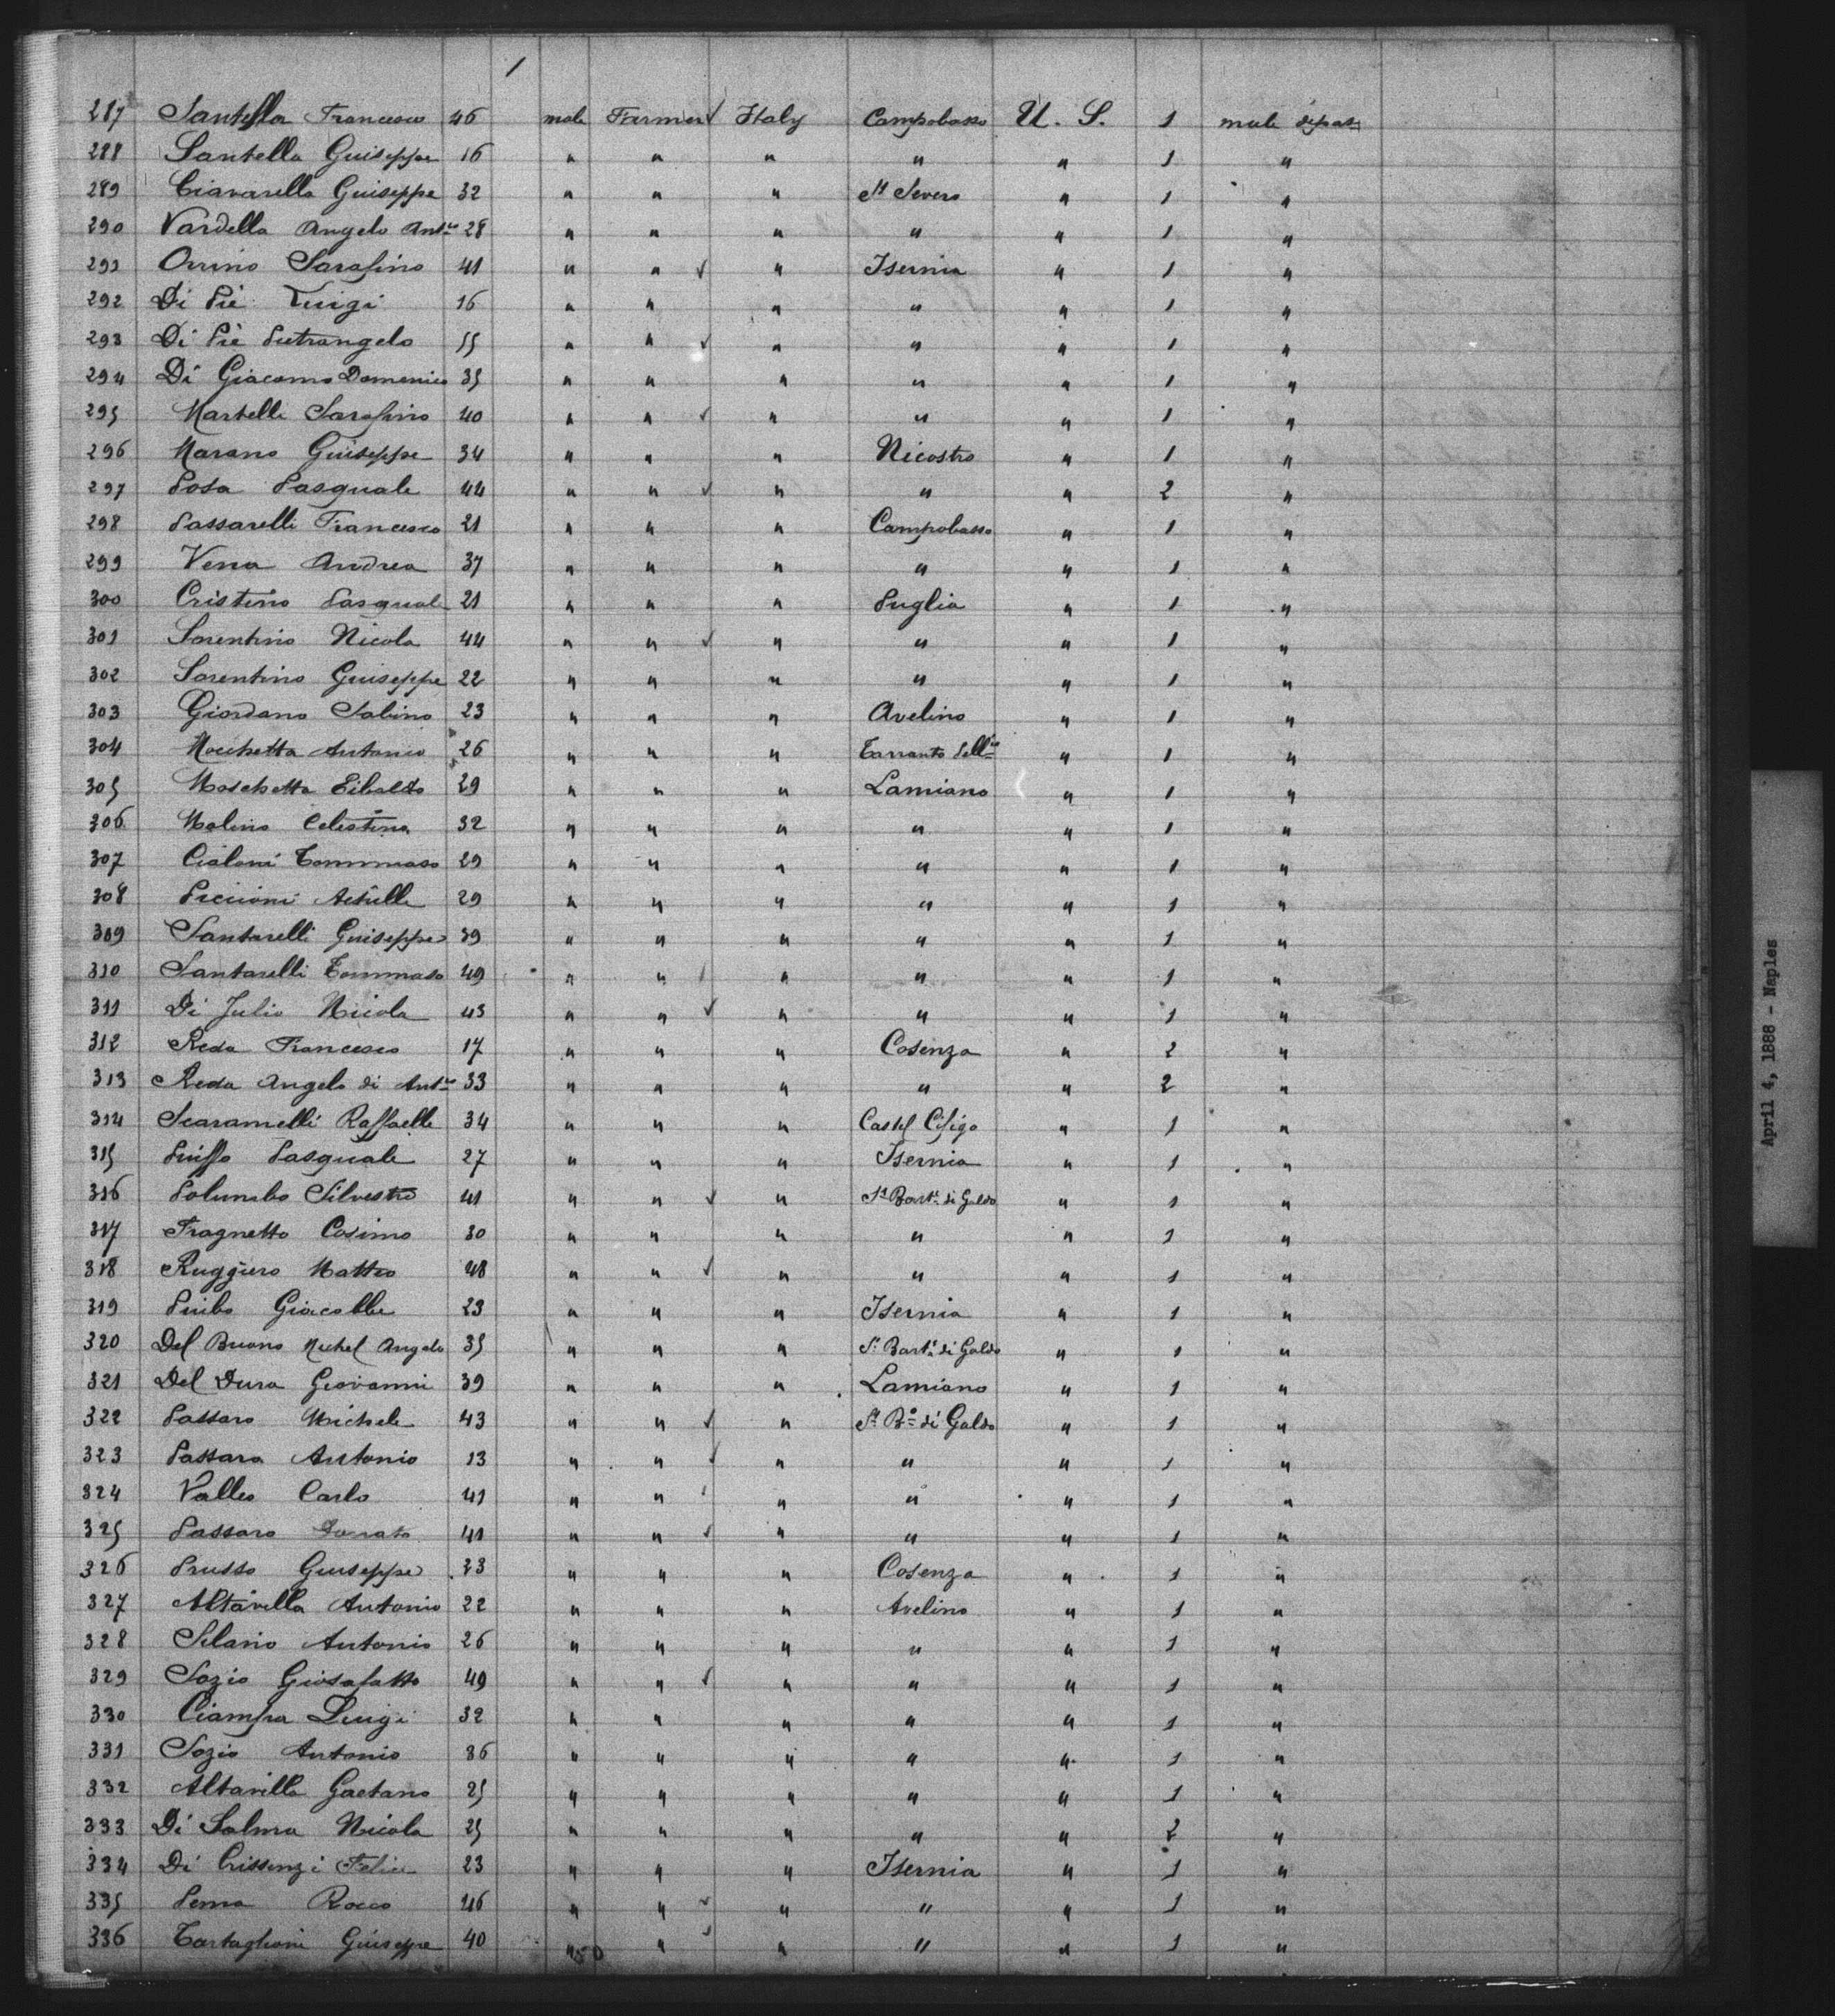 1
287 Santella Francesco 46 male Farmer Italy Campobasso U. S. 1 male
288 Santella Guiseppe 16 " " " " " 1 "
289 Ciavarella Guiseppe 32 " " " St Severo " 1 "
290 Vardella Angelo Anto 28 " " " " " 1 "
291 Orrino Sarafino 41 " " " Isernia " 1 "
292 Di Piè Luigi 16 " " " " " 1 "
293 Di Piè Pietrangelo 55 " " " " " 1 "
294 Di Giacomo Domenico 35 " " " " " 1 "
295 Martelli Sarafino 40 " " " " " 1 "
296 Marano Guiseppe 34 " " " Nicostro " 1 "
297 Posa Pasquale 44 " " " " " 2 "
298 Passarelli Francesco 21 " " " Campobasso " 1 "
299 Vena Andrea 37 " " " " " 1 "
300 Cristino Pasquale 21 " " " Puglia " 1 "
301 Sorentino Nicola 44 " " " " " 1 "
302 Sorentino Guiseppe 22 " " " " " 1 "
303 Giordano Sabino 23 " " " Avelino " 1 "
304 Mocchetta Antonio 26 " " " Tarranto " 1 "
305 Moschetta 29 " " " Lamiano " 1 "
306 Molino Celestino 32 " " " " " 1 "
307 Cialoni Tommaso 29 " " " " " 1 "
308 Piccioni Achille 29 " " " " " 1 "
309 Santarelli Guiseppe 39 " " " " " 1 "
310 Santarelli Tommaso 49 " " " " " 1 "
311 Di Julio Nicola 43 " " " " " 1 "
312 Reda Francesco 17 " " " Cosenza " 2 "
313 Reda Angelo di Anto 33 " " " " " 2 "
314 Scaramelli Raffaelle 34 " " " Castel " 1 "
315 Pasquale 27 " " " Isernia " 1 "
316 Polumbo Silvestro 41 " " " St Barto di Galdo " 1 "
317 Fragnetto Cosimo 30 " " " " " 1 "
318 Ruggiero Matteo 48 " " " " " 1 "
319 Giacobbe 23 " " " Isernia " 1 "
320 Del Buono Michel Angelo 35 " " " St Barto di Galdo " 1 "
321 Del Dura Giovanni 39 " " " Lamiano " 1 "
322 Passaro Michele 43 " " " St Bo di Galdo " 1 "
323 Passaro Antonio 13 " " " " " 1 "
324 Valleo Carlo 41 " " " " " 1 "
325 Passaro Donato 41 " " " " " 1 "
326 Prusso Giuseppe 23 " " " Cosenza " 1 "
327 Altavilla Antonio 22 " " " Avelino " 1 "
328 Silario Antonio 26 " " " " " 1 "
329 Sozio Giosafatto 49 " " " " " 1 "
330 Ciampa Luigi 32 " " " " " 1 "
331 Sozio Antonio 36 " " " " " 1 "
332 Altavilla Gaetano 25 " " " " " 1 "
333 Di Salma Nicola 25 " " " " " 2 "
334 Di Crissenzi Felice 23 " " " Isernia " 1 "
335 Pema Rocco 46 " " " " " 1 "
336 Tartaglioni Giuseppe 40 " " " " " 1 "
50
April 4, 1888 - Naples